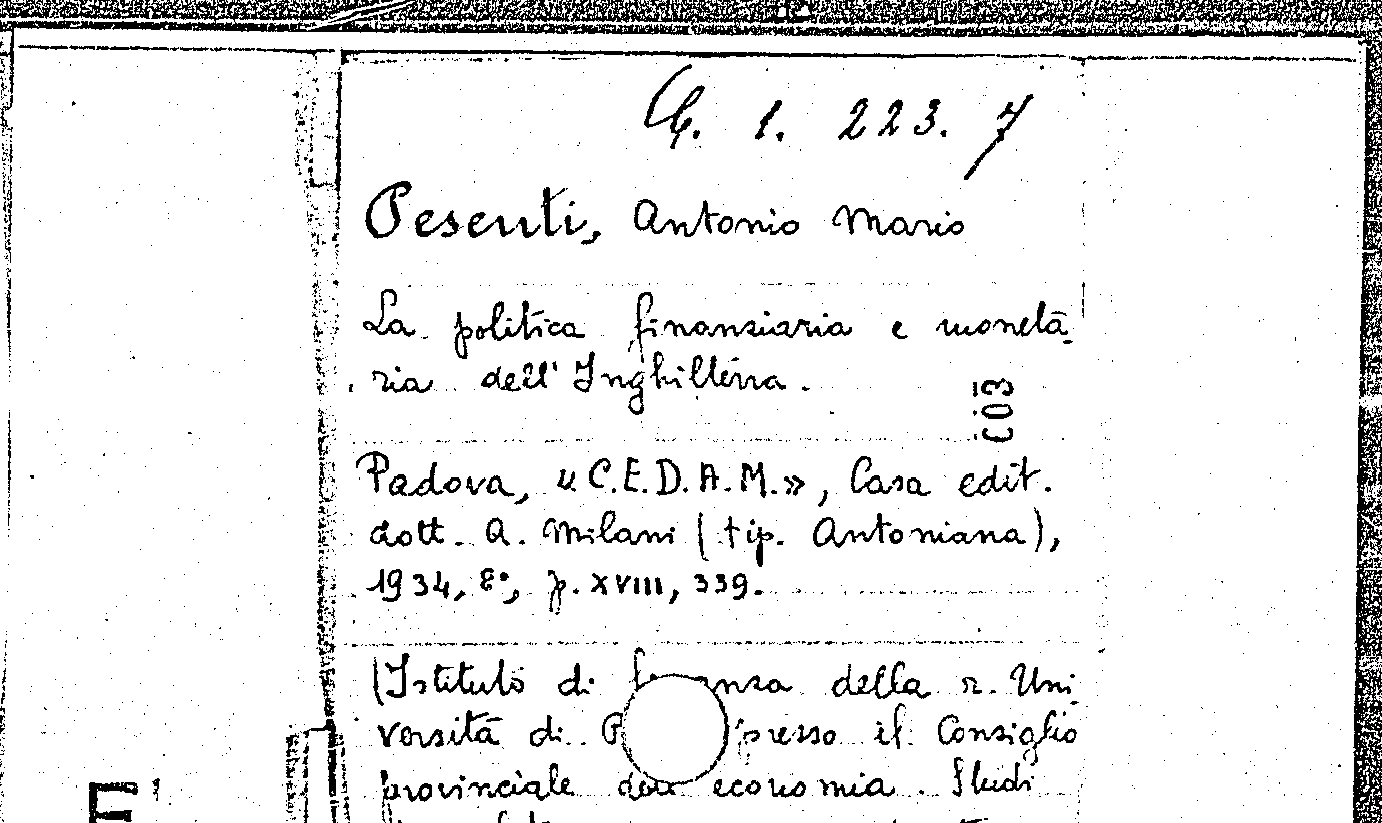 1. 223. 7
Pesenti, Antonio Mario
La politica finanziaria e moneta-
ria dell' Inghilterra.
C03
Padova, «C.E.D.A.M.», Casa edit.
dott. A. Milani (tip. Antoniana),
1934, 8°, p. XVIII, 339.
(Istituto di della r. Uni-
versità di presso il Consiglio
provinciale economia. Studi
E